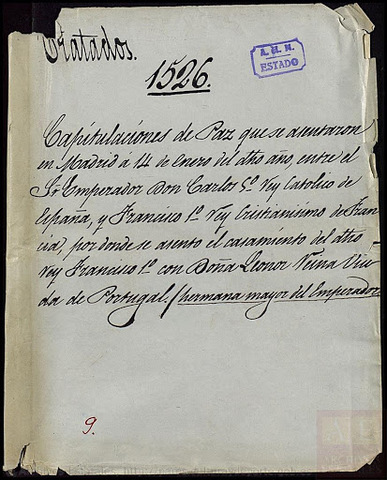 Tratados.
A. H. N.
ESTADO
1526.
Capitulaciones de Paz que se asentaron
en Madrid á 14 de Enero del dho año, entre el
Sr. Emperador Don Carlos 5º Rey Catolico de
España, y Francisco 1º Rey Cristianisimo de Fran
cia, por donde se asentó el casamiento del dho
Rey Francisco 1º con Doña Leonor Reina Viu
da de Portugal. /hermana mayor del Emperador
9.